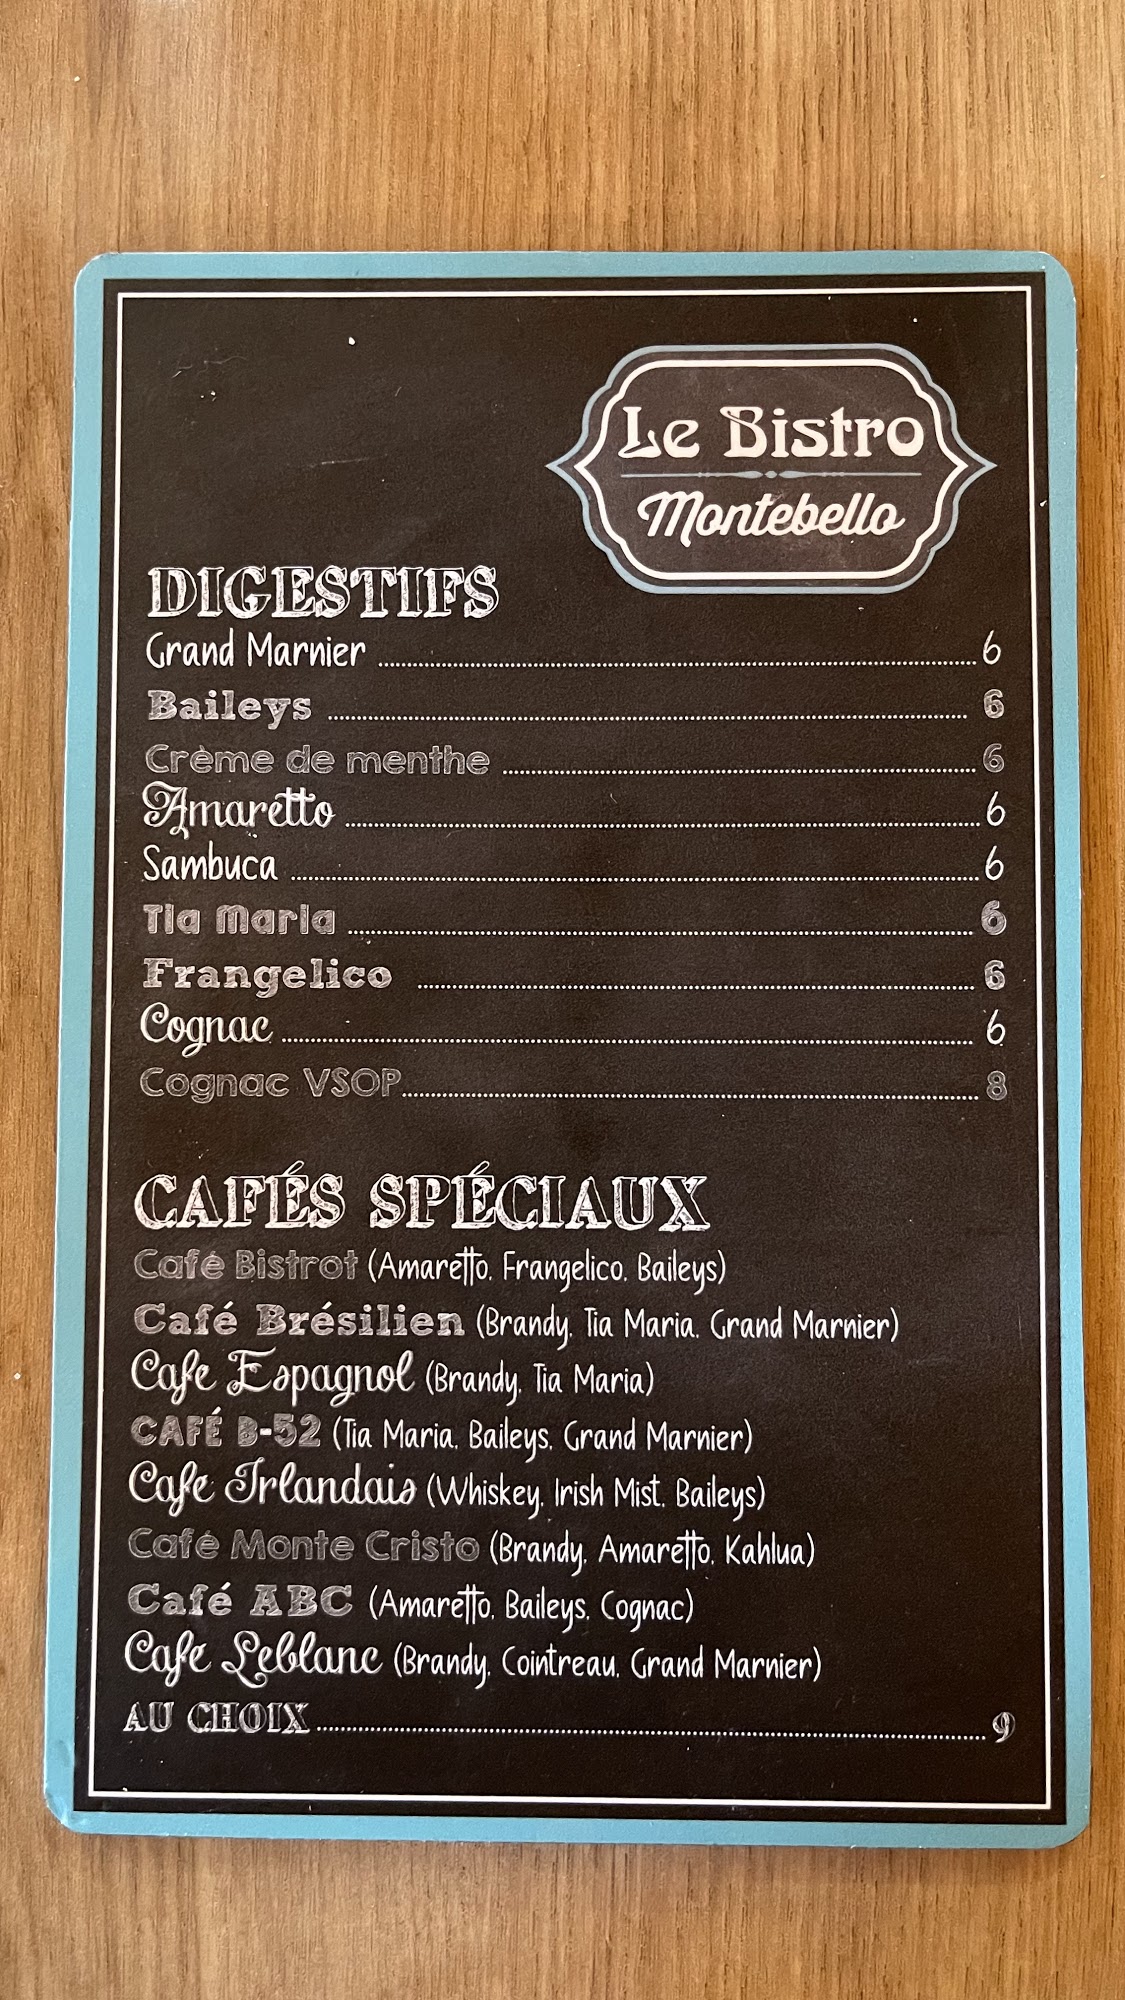 Le Bistro
Montebello
DIGESTIFS
Grand Marnier 6
Baileys 6
Crème de menthe 6
Amaretto 6
Sambuca 6
Tia Maria 6
Frangelico 6
Cognac 6
Cognac VSOP 8
CAFÉS SPÉCIAUX
Café Bistrot (Amaretto, Frangelico, Baileys)
Café Brésilien (Brandy, Tia Maria, Grand Marnier)
Café Espagnol (Brandy, Tia Maria)
CAFÉ B-52 (Tia Maria, Baileys, Grand Marnier)
Café Irlandais (Whiskey, Irish Mist, Baileys)
Café Monte Cristo (Brandy, Amaretto, Kahlua)
Café ABC (Amaretto, Baileys, Cognac)
Café Leblanc (Brandy, Cointreau, Grand Marnier)
AU CHOIX 9